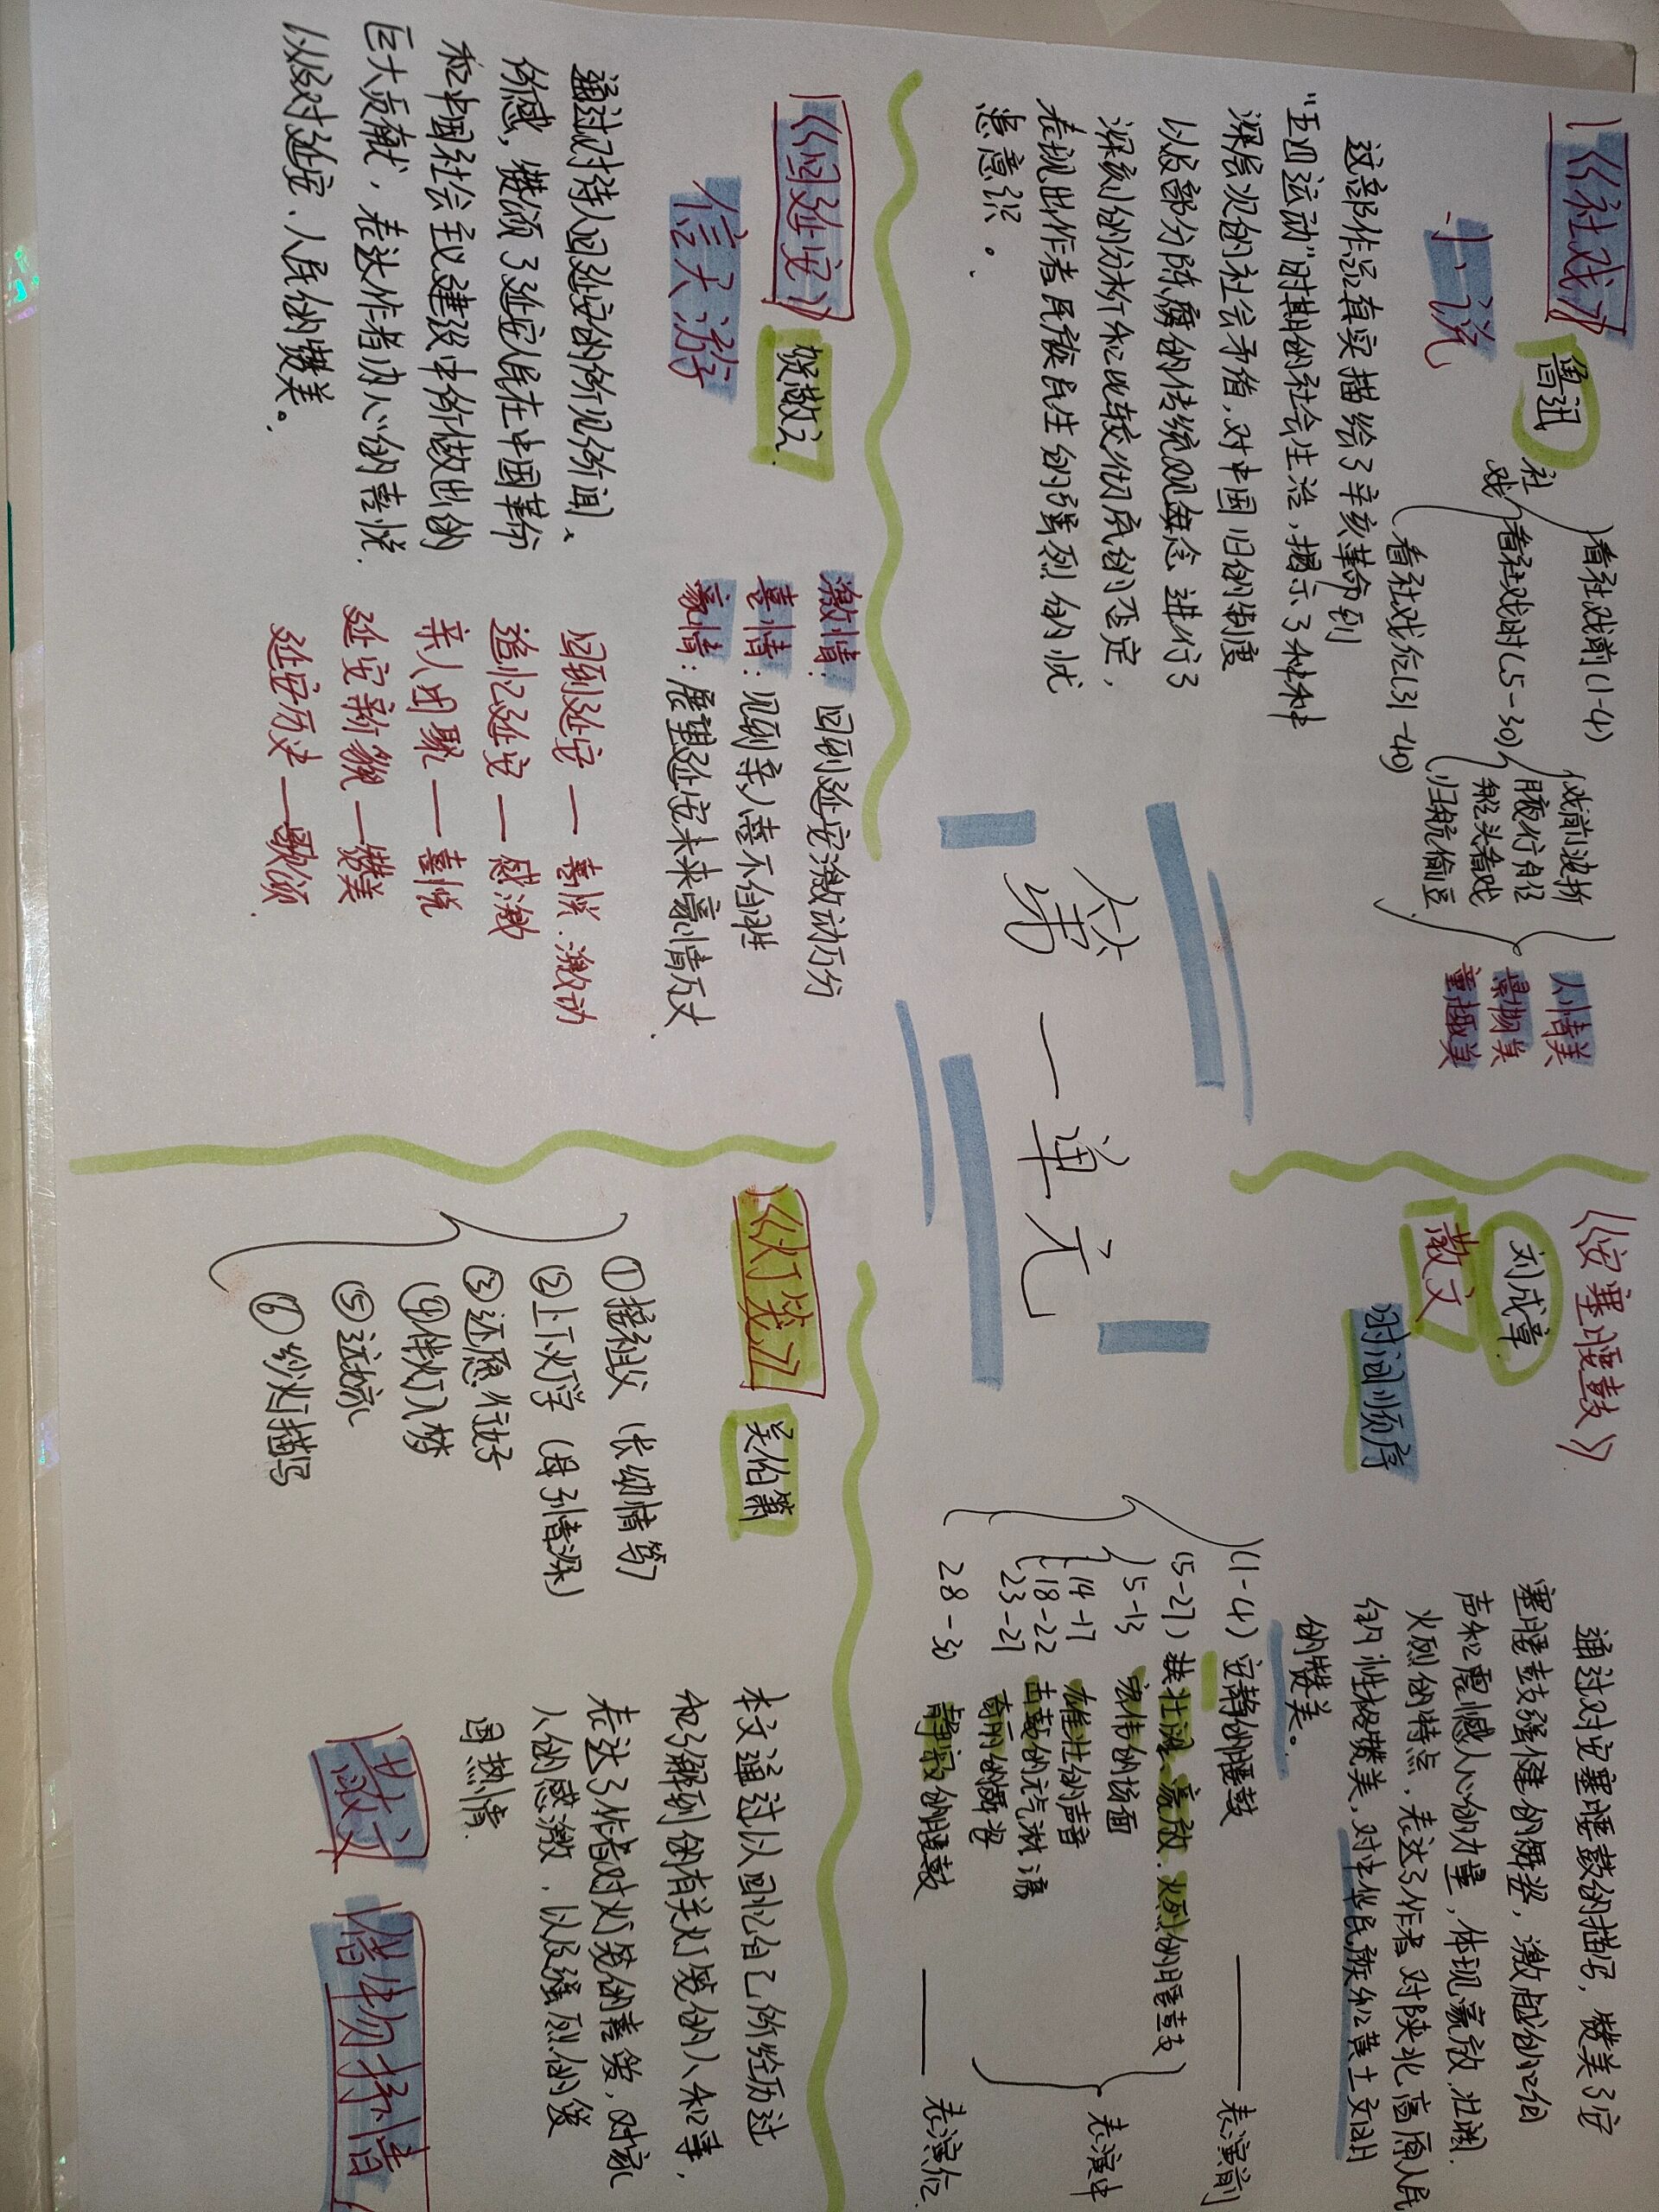 《社戏》
鲁迅
小说
社戏
看社戏前(1-4)
看社戏时(5-30)
看社戏后(31-40)
戏前波折
月夜行船
船头看戏
归航偷豆
人情美
景物美
童趣美
这部作品真实描绘了辛亥革命到
"五四运动"时期的社会生活,揭示了种种
深层次的社会矛盾,对中国旧的制度
以及部分陈腐的传统观念进行了
深刻的分析和比较彻底的否定,
表现出作者民族民生的强烈的忧
患意识。
第一单元
《安塞腰鼓》
刘成章
散文
时间顺序
通过对安塞腰鼓的描写,赞美了安
塞腰鼓强健的舞姿,激越的
声和震憾人心的力量,体现豪放.壮阔.
火烈的特点,表达了作者对陕北高原人民
的赞美,对中华民族和黄土文明
的赞美。
(1-4)安静的腰鼓——表演前
(5-27)壮阔、豪放.火烈的腰鼓
5-13 宏伟的场面
14-17 雄壮的声音
18-22 击鼓的元气淋漓
23-27 奇丽的舞姿
表演中
28-30 静寂的腰鼓——表演后
《回延安》
贺敬之
信天游
激情:回到延安激动万分
喜情:见到亲人喜不自胜
豪情:展望延安未来豪情万丈.
通过对诗人回延安的所见所闻、
所感,赞颂了延安人民在中国革命
和中国社会主义建设中所做出的
巨大贡献,表达作者内心的喜悦.
以及对延安、人民的赞美。
回到延安—喜悦.激动
追忆延安—感激
亲人团聚—喜悦
延安新貌—赞美
延安历史—歌颂.
《灯笼》
吴伯箫
①接祖父(长幼情笃)
②上下灯学(母子情深)
③还愿行好
④伴灯入梦
⑤远嫁
⑥纱灯描写
本文通过以回忆自己所经历过
和了解到的有关灯笼的人和事,
表达了作者对灯笼的喜爱,对家
人的感激,以及强烈的爱
国热情.
散文
借物抒情